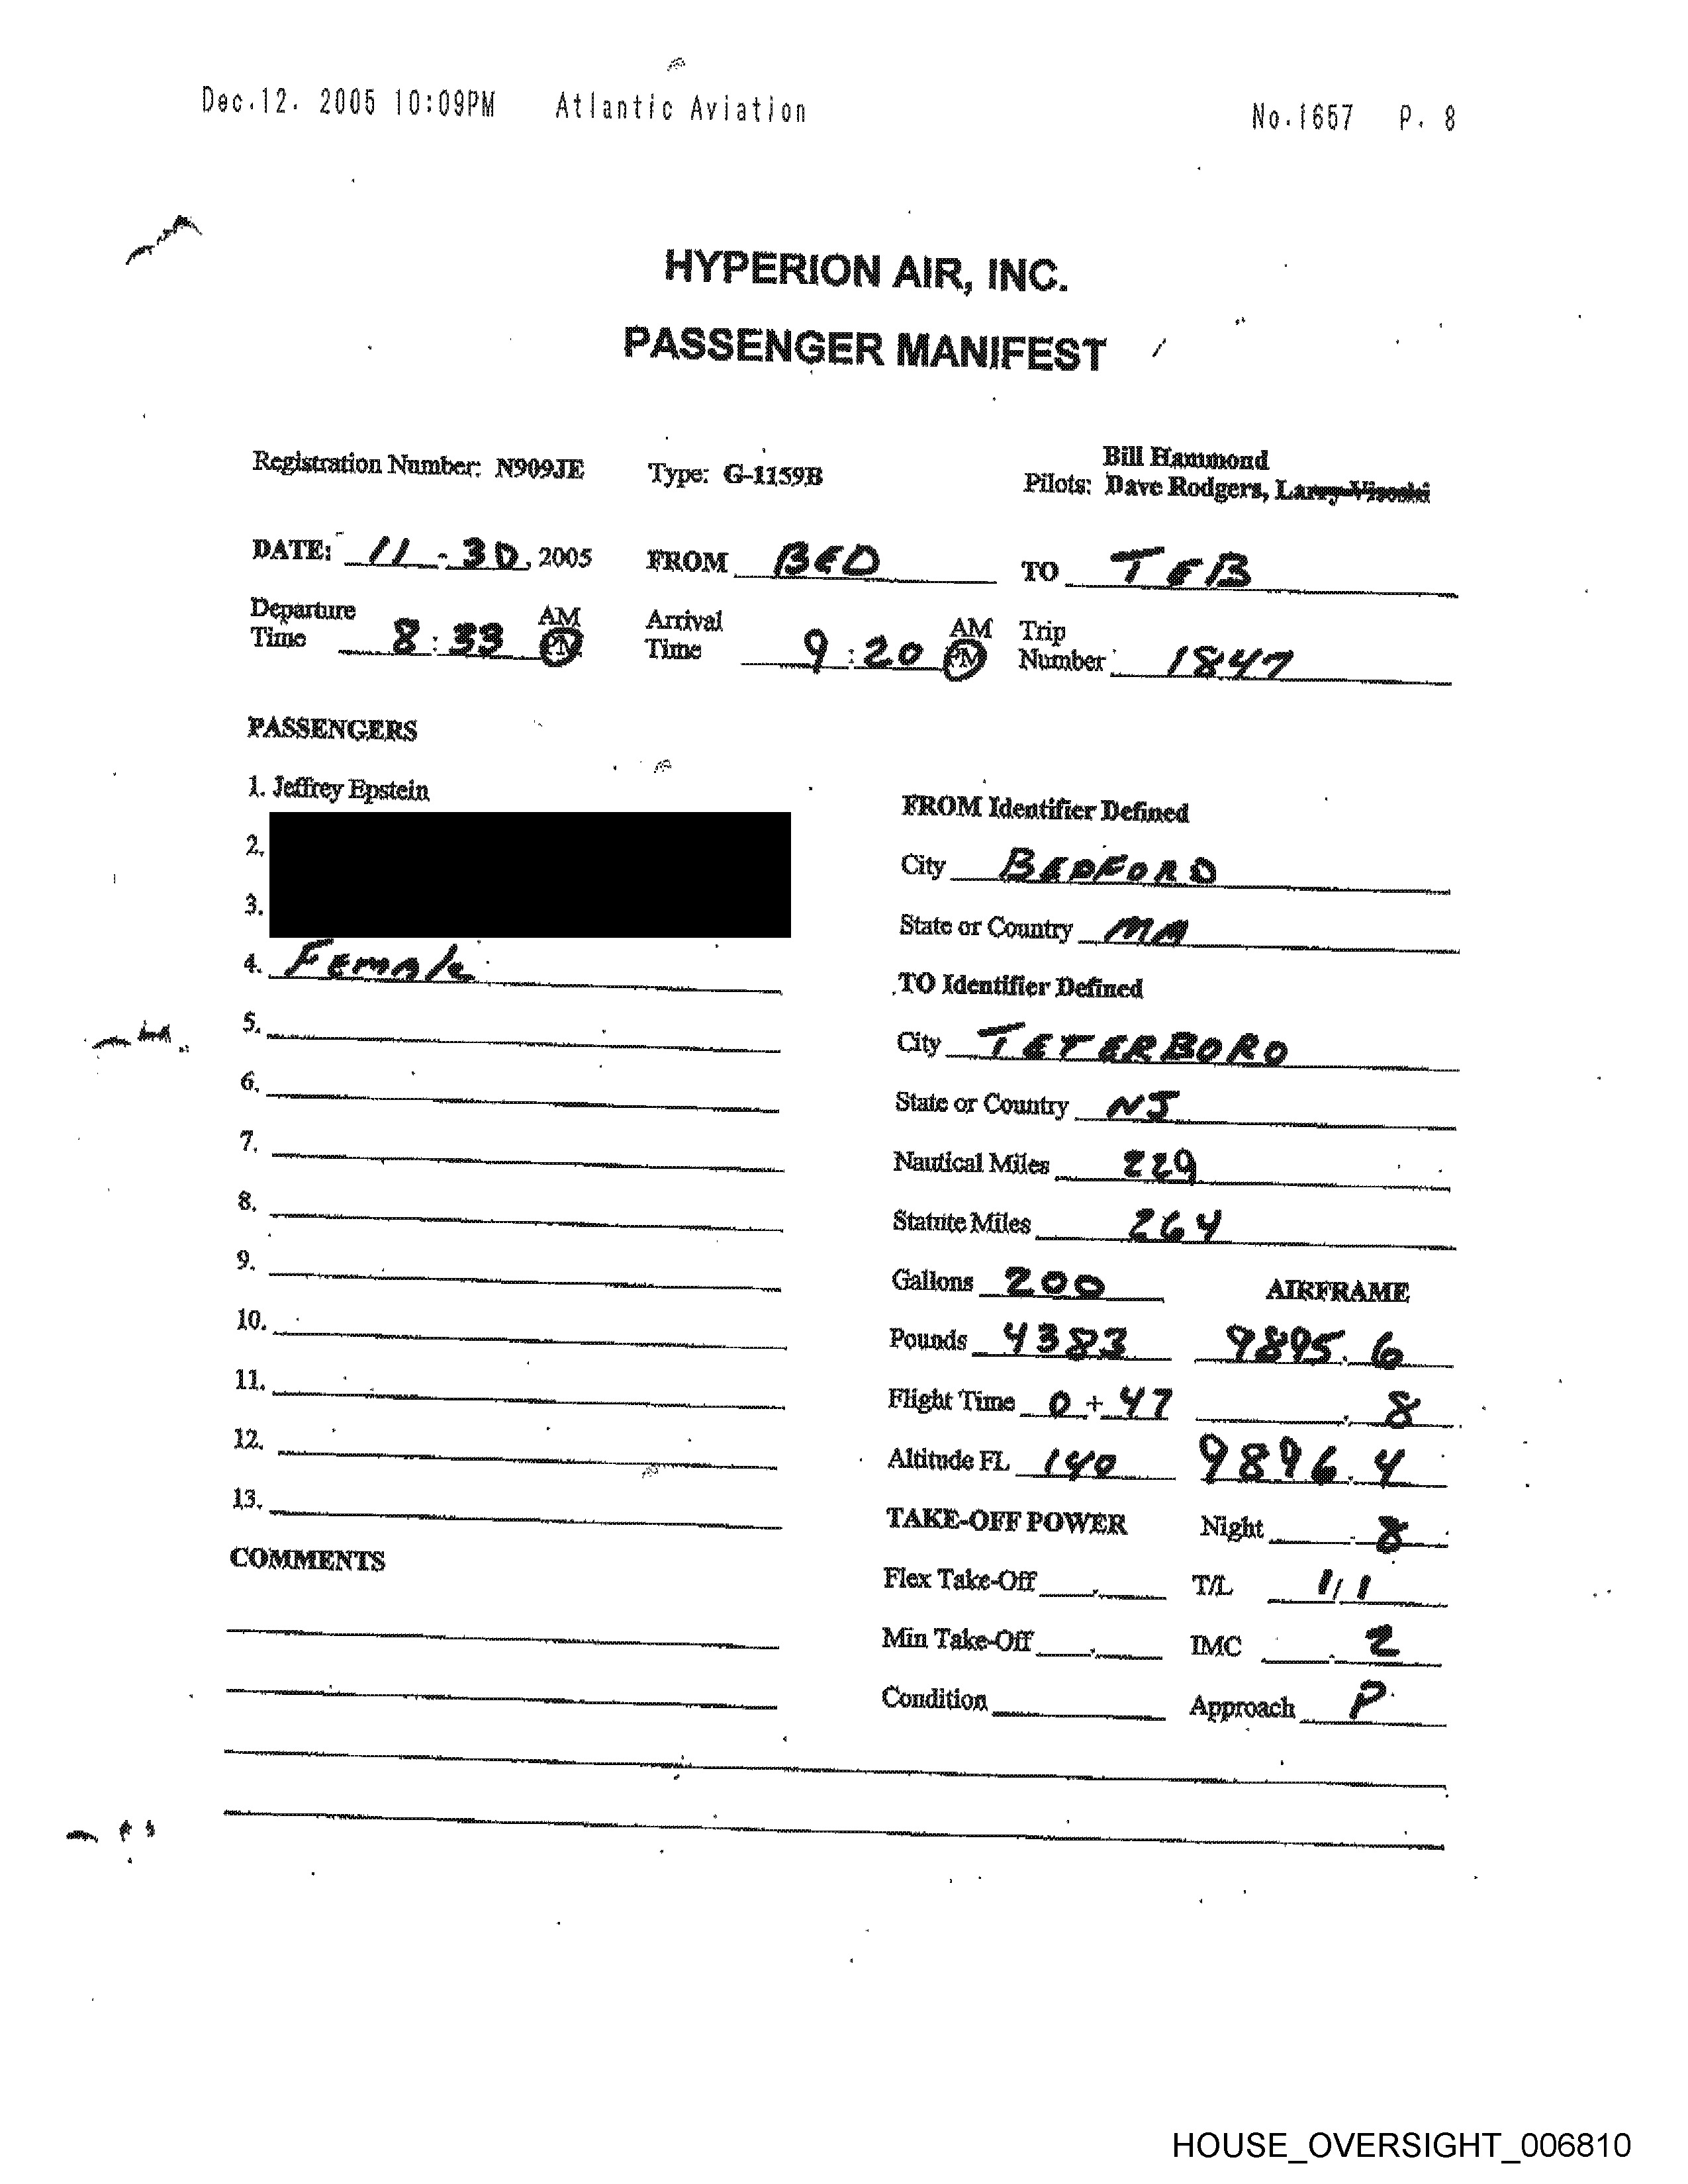 Dec.12. 2005 10:09PM Atlantic Aviation No.1657 P. 8
HYPERION AIR, INC.
PASSENGER MANIFEST
Bill Hammond
Registration Number: N909JE Type: G-1159B Pilots: Dave Rodgers, Larry Visoski
DATE: 11-30, 2005 FROM BED TO TEB
Departure Time 8:33 AM PM Arrival Time 9:20 AM PM Trip Number 1847
PASSENGERS
1. Jeffrey Epstein
2.
3.
4. Female
5.
6.
7.
8.
9.
10.
11.
12.
13.
COMMENTS
FROM Identifier Defined
City BEDFORD
State or Country MA
TO Identifier Defined
City TETERBORO
State or Country NJ
Nautical Miles 229
Statute Miles 264
Gallons 200 AIRFRAME
Pounds 4383 9895.6
Flight Time 0+47 .8
Altitude FL 140 9896.4
TAKE-OFF POWER Night .8
Flex Take-Off T/L 1/1
Min Take-Off IMC .2
Condition Approach P
HOUSE_OVERSIGHT_006810